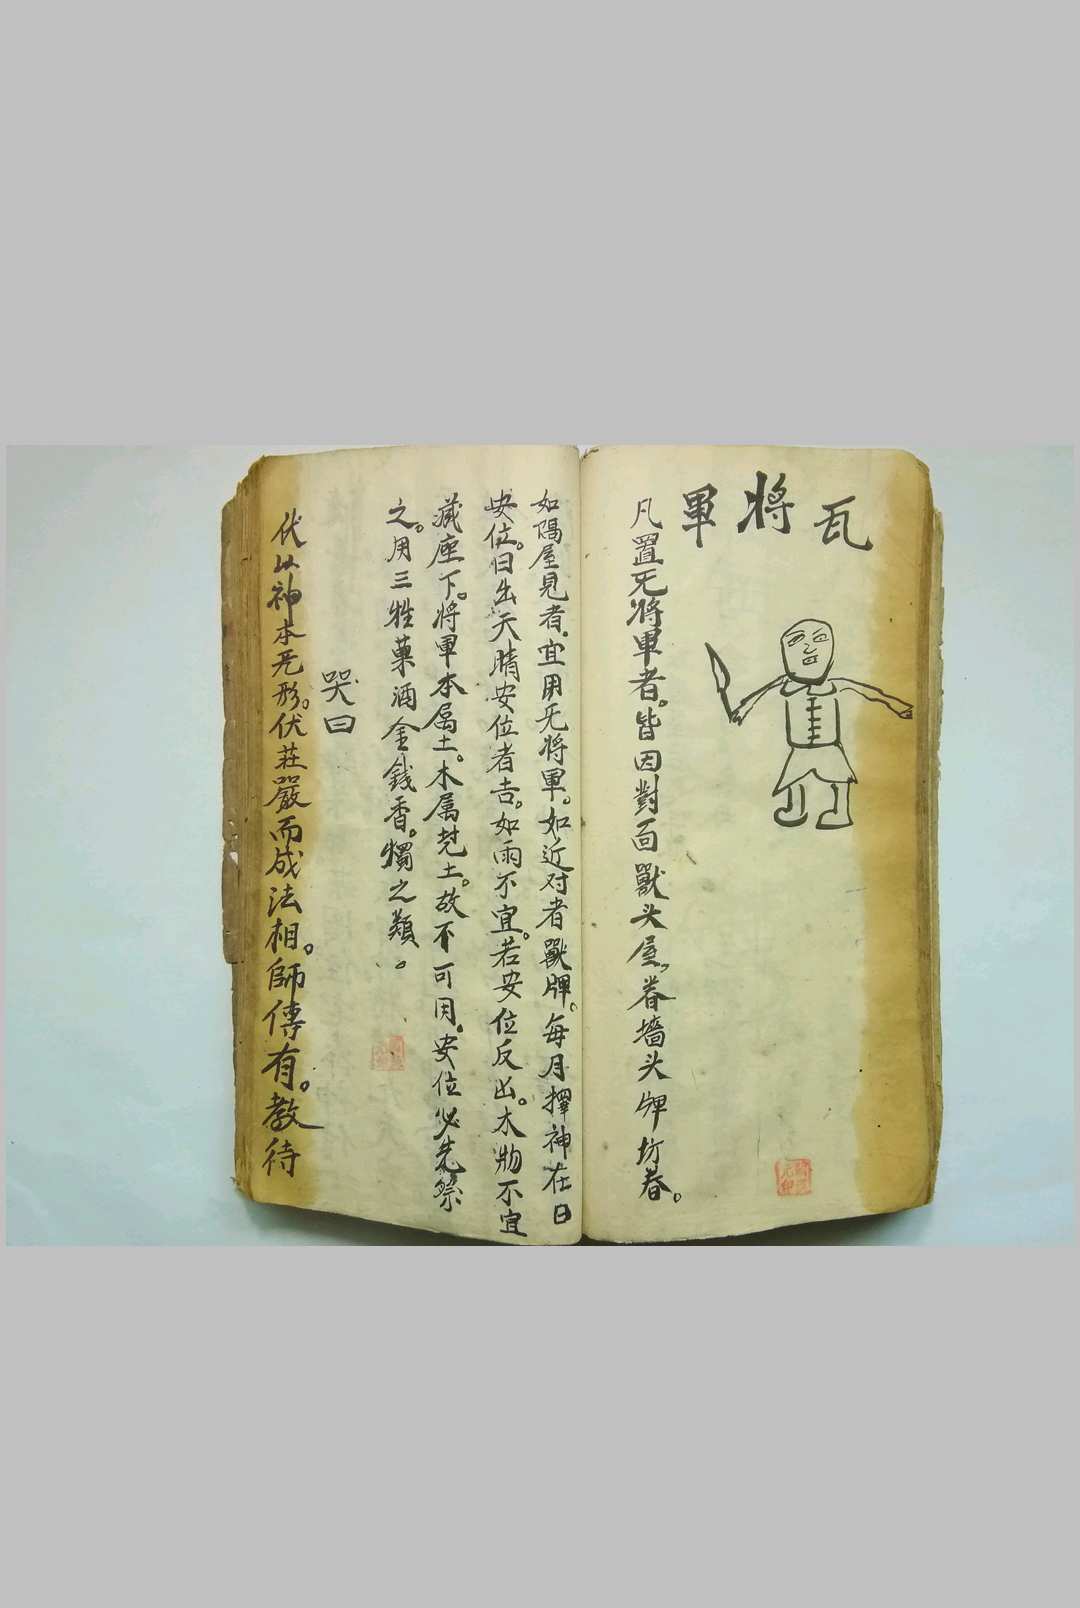 瓦將軍
凡置死將軍者。皆因對面獸头屋。眷墻头牌坊眷。
如隔屋見者。宜用死將軍。如近对者獸牌。每月擇神在日
安位。日出天晴安位者吉。如雨不宜。若安位反凶。木物不宜
藏座下。將軍本属土。木属尅土。故不可用。安位必先祭
之。用三牲菓酒金錢香。燭之類。
哭曰
伏以神本无形。伏莊嚴而成法相。師傳有。教待